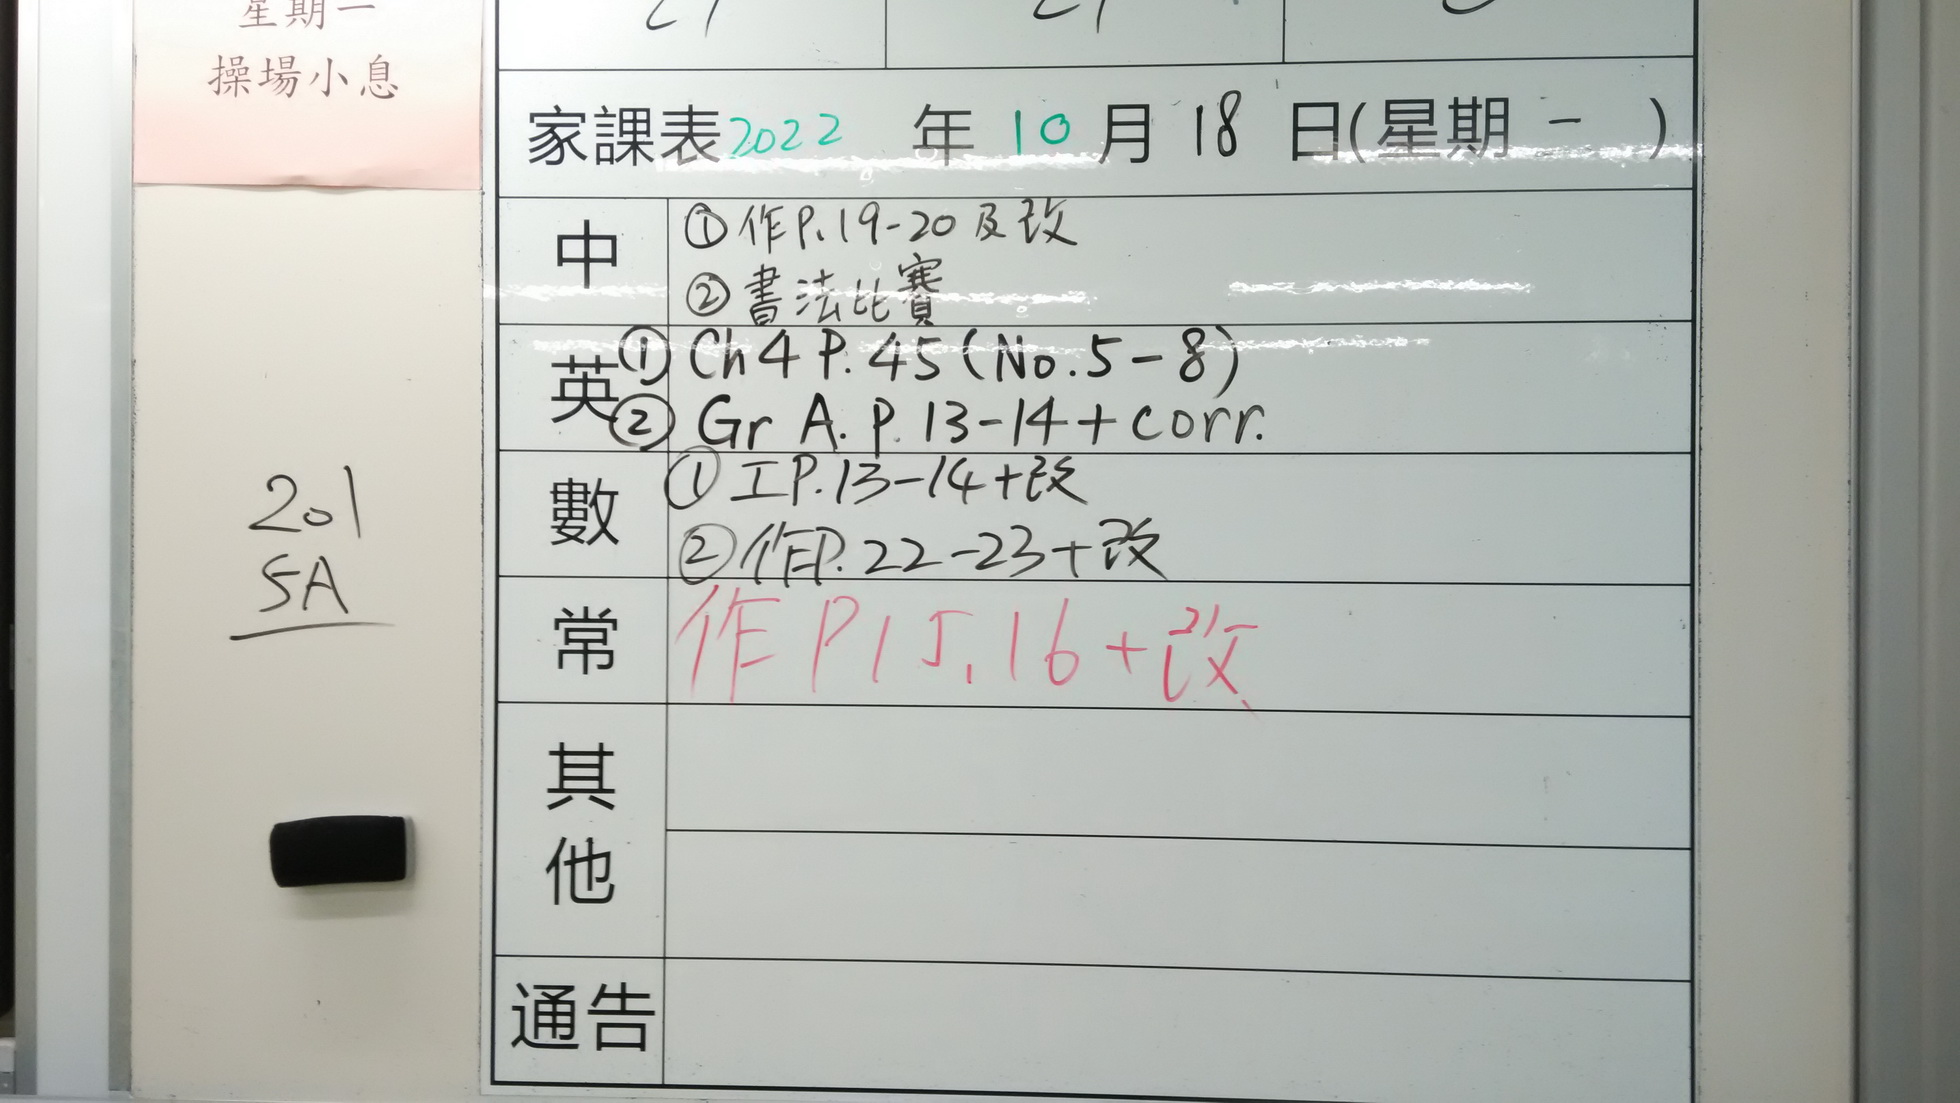 星期一
操場小息
家課表2022 年 10 月 18 日(星期 一 )
中
①作P.19-20及改
②書法比賽
英
①Ch4 P.45(No.5-8)
②Gr A. P.13-14+corr.
數
①工P.13-14+改
②作P.22-23+改
常
作P15,16+改
其他
通告
201
5A